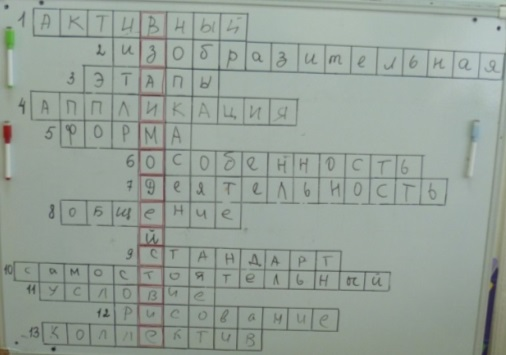 1 АКТИВНЫЙ
2 изобразительная
3 ЭТАПЫ
4 АППЛИКАЦИЯ
5 ФОРМА
6 ОСОБЕННОСТЬ
7 Деятельность
8 общение
й
9 СТАНДАРТ
10 самостоятельный
11 условие
12 Рисование
13 КОЛЛЕКТИВ